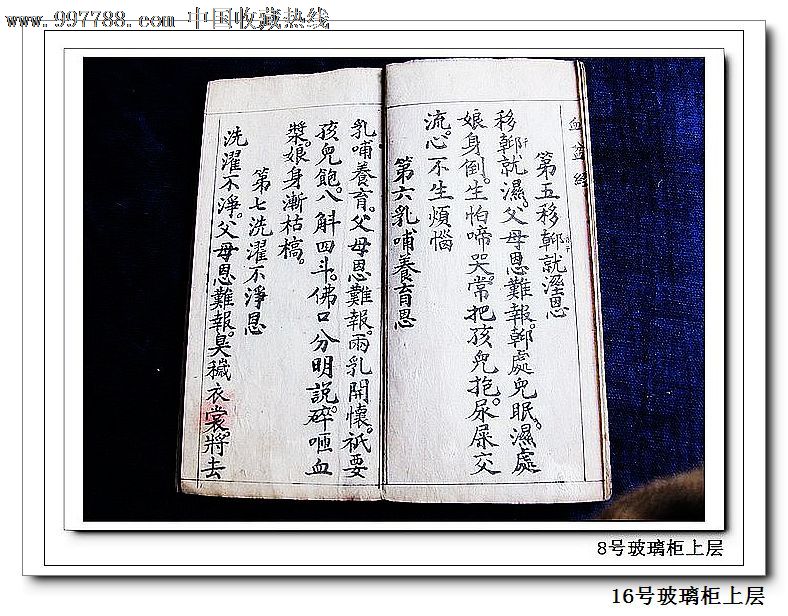 www.997788.com 中国收藏热线
血盆经
第五移鄿就濕恩
移鄿就濕。父母恩難報。鄿處兒眠。濕處
娘身倒。生怕啼哭。常把孩兒抱。尿屎交
流。心不生煩惱
第六乳哺養育恩
乳哺養育。父母恩難報。兩乳開懷。祇要
孩兒飽。八斛四斗。佛口分明說。碎咂血
漿。娘身漸枯槁。
第七洗濯不淨恩
洗濯不淨。父母恩難報。臭穢衣裳。將去
8号玻璃柜上层
16号玻璃柜上层